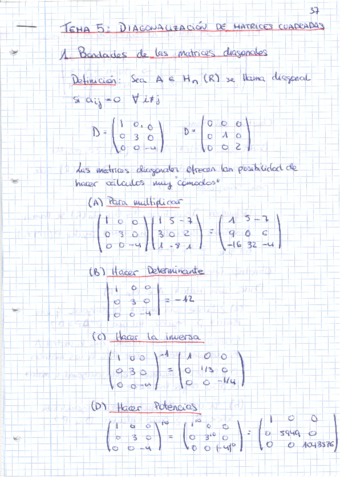 37
TEMA 5: DIAGONALIZACIÓN DE MATRICES CUADRADAS
1. Bondades de las matrices diagonales
Definición: Sea A ∈ Mn (R) se llama diagonal
si aij = 0 ∀ i≠j
D = (1 0 0 / 0 3 0 / 0 0 -4) D = (0 0 0 / 0 1 0 / 0 0 2)
Las matrices diagonales ofrecen la posibilidad de
hacer cálculos muy "cómodos"
(A) Para multiplicar
(1 0 0 / 0 3 0 / 0 0 -4) (1 5 -7 / 3 0 2 / 1 -8 1) = (1 5 -7 / 9 0 6 / -16 32 -4)
(B) Hacer Determinante
|1 0 0 / 0 3 0 / 0 0 -4| = -12
(C) Hacer la inversa
(1 0 0 / 0 3 0 / 0 0 -4)^-1 = (1 0 0 / 0 1/3 0 / 0 0 -1/4)
(D) Hacer Potencias
(1 0 0 / 0 3 0 / 0 0 -4)^10 = (1^10 0 0 / 0 3^10 0 / 0 0 (-4)^10) = (1 0 0 / 0 5949 0 / 0 0 1048576)